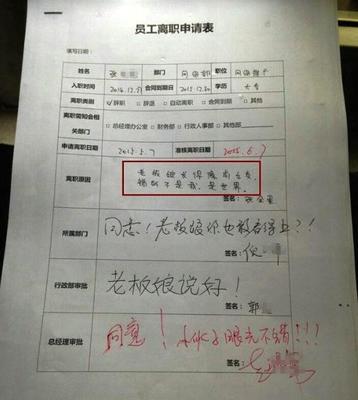 员工离职申请表
填写日期：
姓名 张 部门 网络部 职位 网络推广
入职时间 2014.12.21 合同到期日 2015.12.20 学历 大专
离职类别 辞职 □ 辞退 □ 自动离职 □ 合同到期 □ 其他
离职需知会相关部门 □ 总经理办公室 □ 财务部 □ 行政人事部 □ 其他部
申请离职日期 2015.5.7 准核离职日期 2015.6.7
离职原因
老板娘长得魔高三丈，
错的不是我，是世界。
签名：张
所属部门
同志！老板娘你也敢看得上？！
签名：倪
行政部审批
老板娘说好！
签名：郭
总经理审批
同意！小伙子眼光不错！！！
签名：